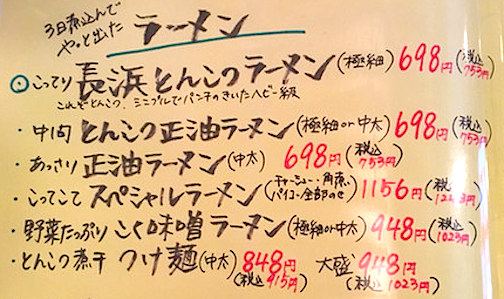 3日煮込んで
やっと出た
ラーメン
◎こってり 長浜とんこつラーメン(極細) 698円(税込753円)
これぞとんこつ、シンプルでパンチのきいたヘビー級
・中間 とんこつ正油ラーメン(極細or中太) 698円(税込753円)
・あっさり 正油ラーメン(中太) 698円(税込753円)
・こってこて スペシャルラーメン(チャーシュー・角煮・パイコー全部のせ) 1156円(税込1248円)
・野菜たっぷり こく味噌ラーメン(極細or中太) 948円(税込1023円)
・とんこつ煮干 つけ麺(中太) 848円(税込915円) 大盛 948円(税込1023円)